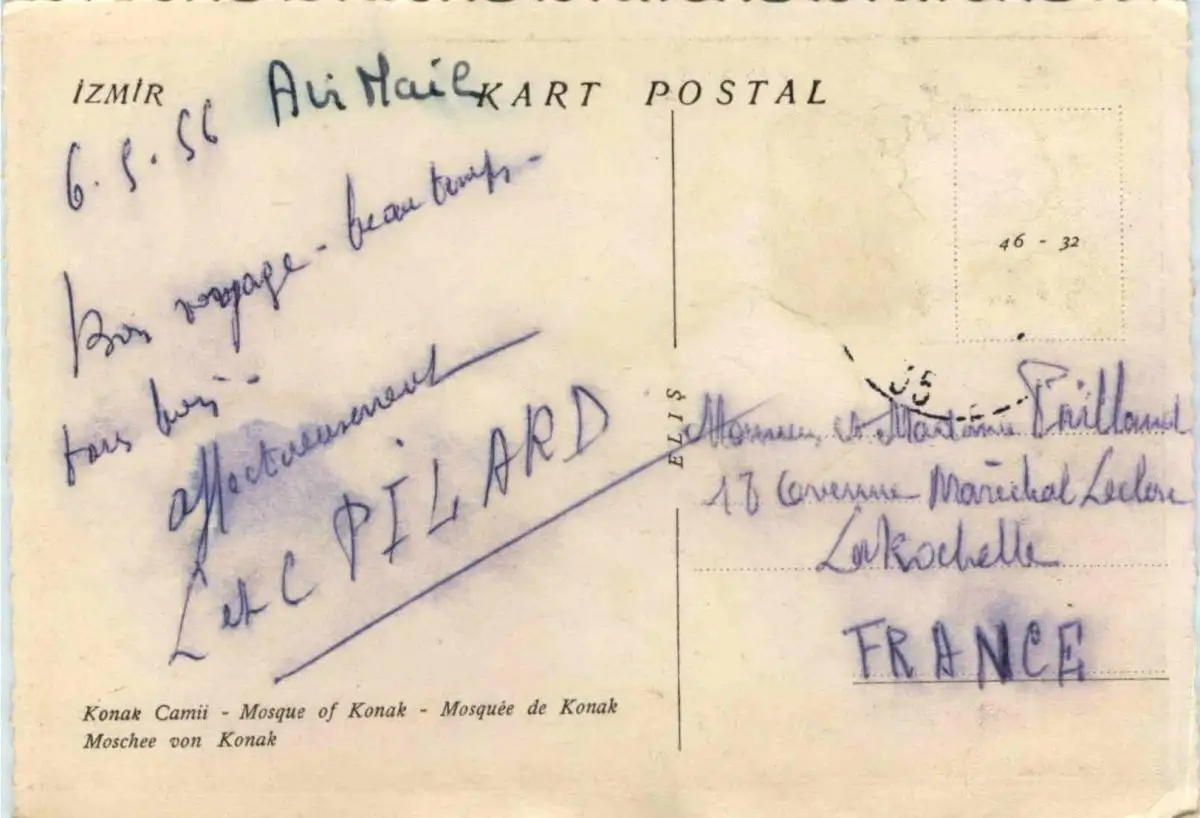 İZMİR
Air Mail
KART POSTAL
6.5.56
Bon voyage - beau temps -
tous bien -
affectueusement
L et C PILARD
Konak Camii - Mosque of Konak - Mosquée de Konak
Moschee von Konak
ELİŞ
46 - 32
Monsieur et Madame
18 avenue Maréchal Leclerc
La Rochelle
FRANCE